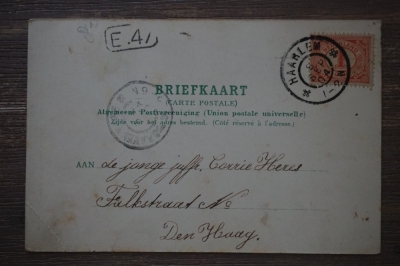 E.41
HAARLEM
BRIEFKAART
(CARTE POSTALE)
Algemeene Postvereeniging (Union postale universelle)
Zijde voor het adres bestemd. (Côté réservé à l'adresse.)
AAN
de jonge juffr. Corrie Heres
Falkstraat No
Den Haag.